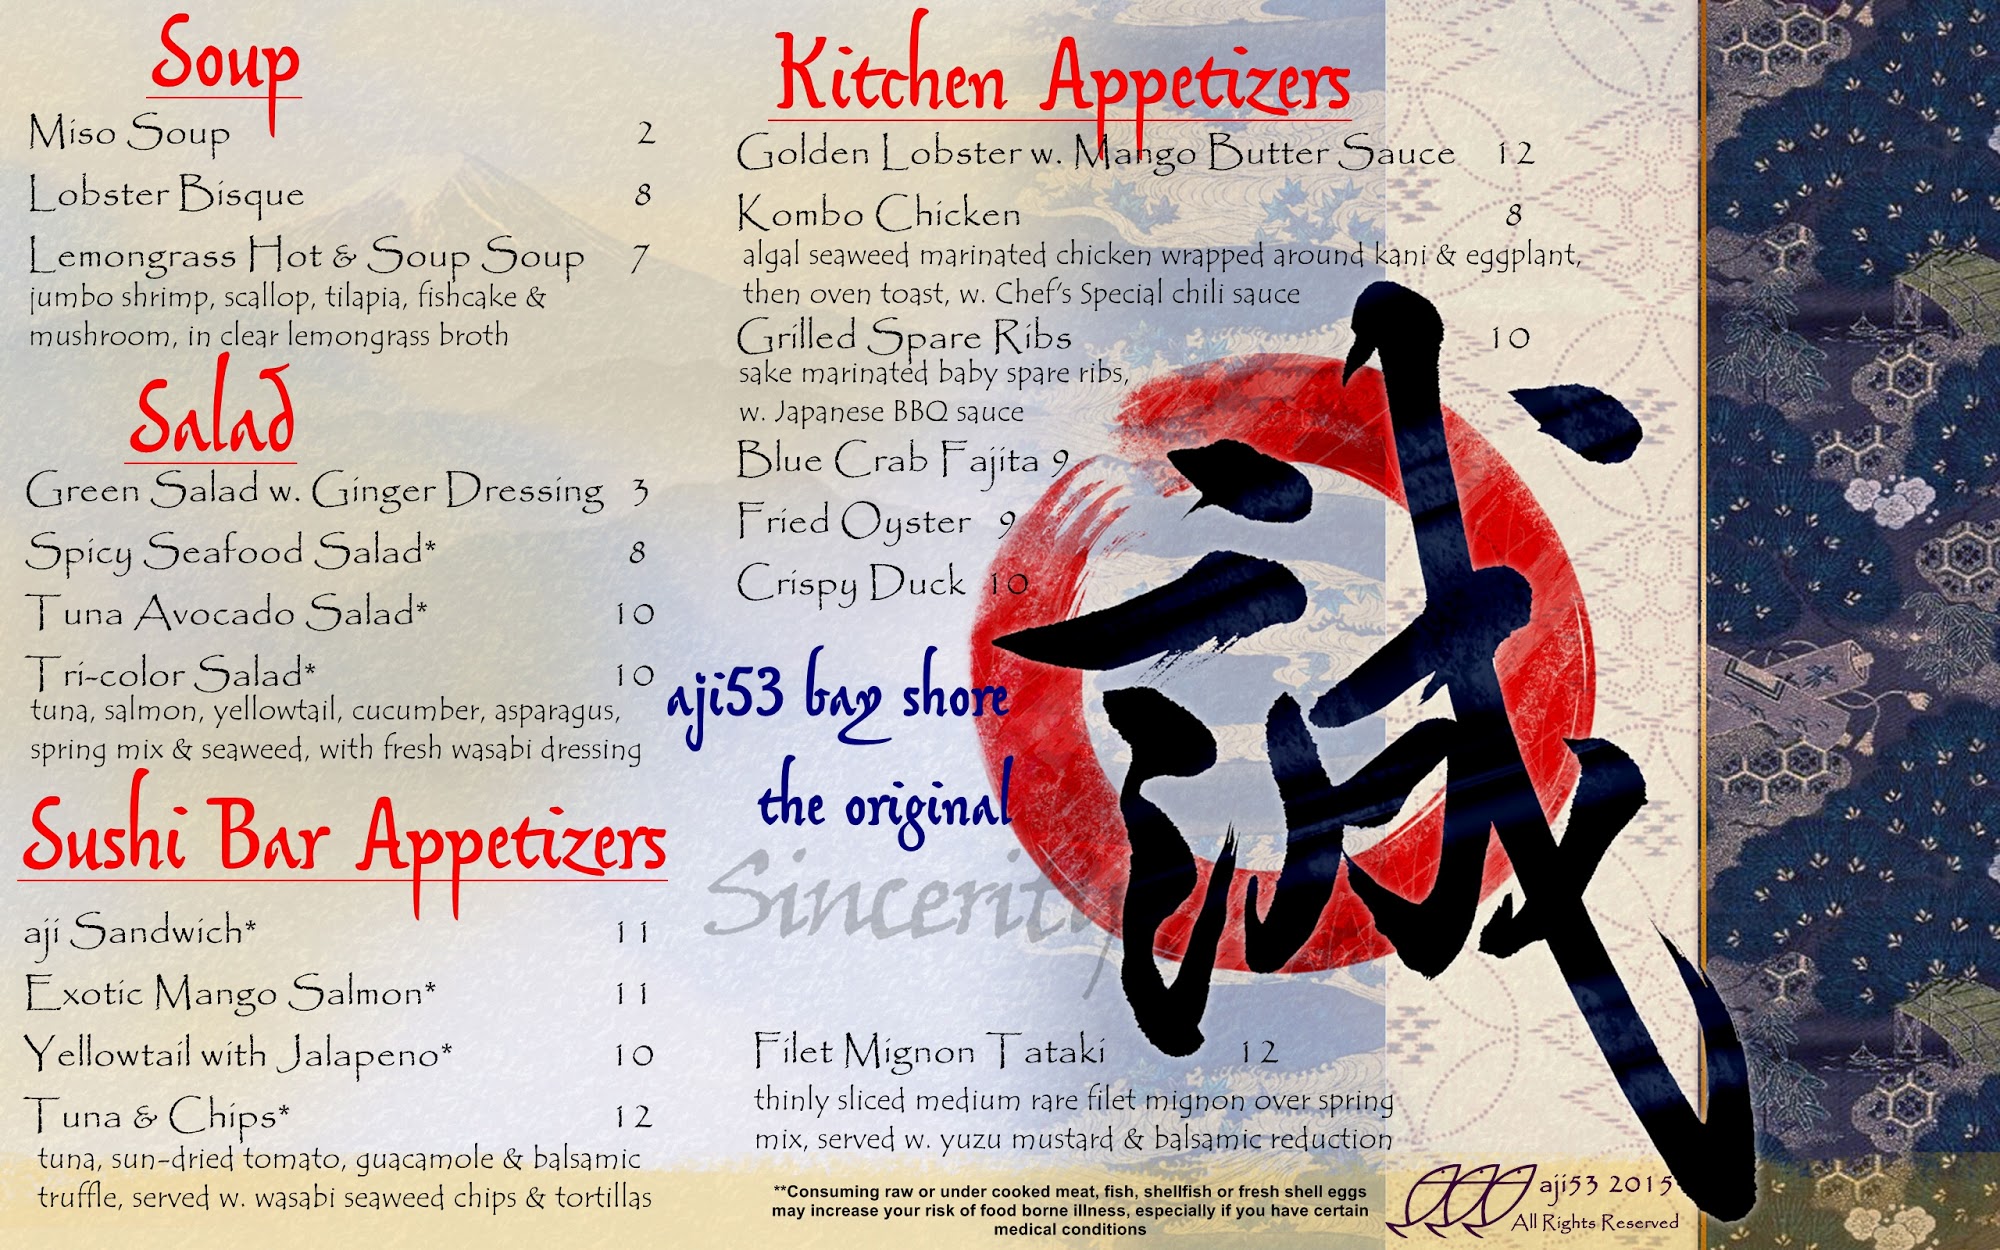 Soup
Miso Soup 2
Lobster Bisque 8
Lemongrass Hot & Soup Soup 7
jumbo shrimp, scallop, tilapia, fishcake &
mushroom, in clear lemongrass broth
Salad
Green Salad w. Ginger Dressing 3
Spicy Seafood Salad* 8
Tuna Avocado Salad* 10
Tri-color Salad* 10
tuna, salmon, yellowtail, cucumber, asparagus,
spring mix & seaweed, with fresh wasabi dressing
Sushi Bar Appetizers
aji Sandwich* 11
Exotic Mango Salmon* 11
Yellowtail with Jalapeno* 10
Tuna & Chips* 12
tuna, sun-dried tomato, guacamole & balsamic
truffle, served w. wasabi seaweed chips & tortillas
Kitchen Appetizers
Golden Lobster w. Mango Butter Sauce 12
Kombo Chicken 8
algal seaweed marinated chicken wrapped around kani & eggplant,
then oven toast, w. Chef's Special chili sauce
Grilled Spare Ribs 10
sake marinated baby spare ribs,
w. Japanese BBQ sauce
Blue Crab Fajita 9
Fried Oyster 9
Crispy Duck 10
aji53 bay shore
the original
Sincerity
誠
Filet Mignon Tataki 12
thinly sliced medium rare filet mignon over spring
mix, served w. yuzu mustard & balsamic reduction
**Consuming raw or under cooked meat, fish, shellfish or fresh shell eggs
may increase your risk of food borne illness, especially if you have certain
medical conditions
aji53 2015
All Rights Reserved